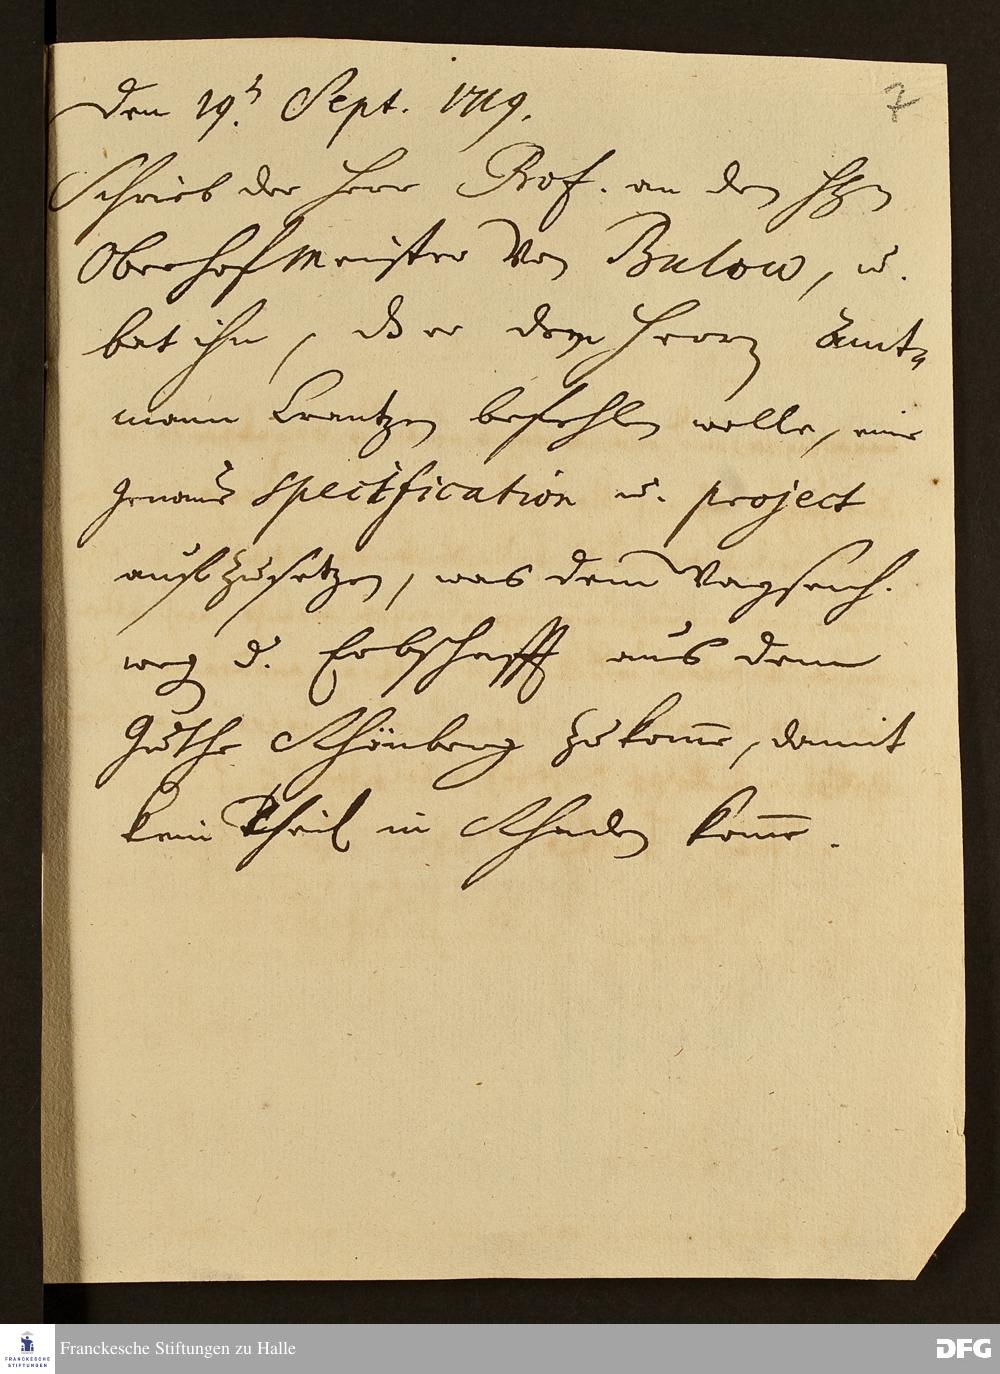 7
Den 19.t Sept. 1719.
Schrieb der Herr Prof. an den HEn
OberhofMeister von Bulow, u.
bat ihn, dß er dem Herrn Amt-
mann Crantzen befehlen wolle, eine
genaue specification u. project
auffzusetzen, was dem Waysenh.
weg. d. Erbschafft aus dem
Guthe Schönberg zukom̅e, damit
kein Theil in Schaden kom̅e.
Franckesche Stiftungen zu Halle
FRANCKESCHE
STIFTUNGEN
DFG